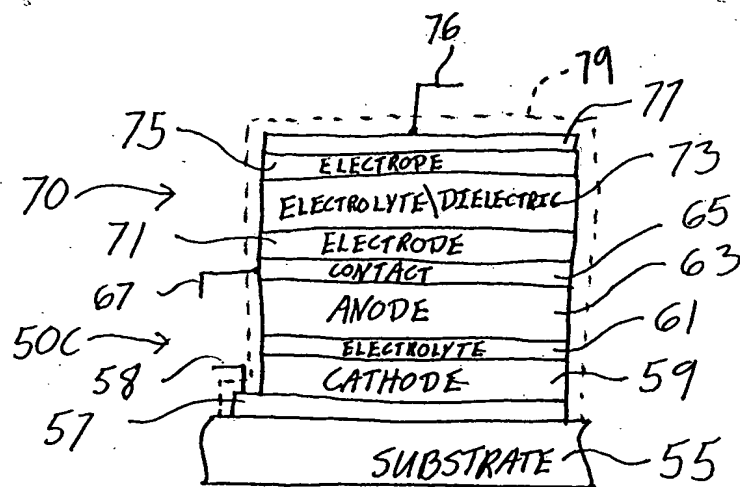 76
79
77
75 ELECTRODE
73
70 ELECTROLYTE\DIELECTRIC
71 ELECTRODE
65
CONTACT
63
67 ANODE
50C ELECTROLYTE 61
58 CATHODE 59
57
SUBSTRATE 55